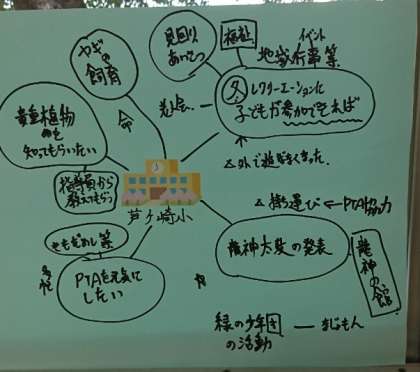 ヤギの
飼育
見回り
あいさつ
福祉
イベント
地域行事等
冬レクリエーションに
子どもが参加できれば
貴重植物
知ってもらいたい
命
指導員から
教えてもらう
芦ヶ崎小
△外で遊ばなくなった。
△持ち運び←PTA協力
龍神太鼓の発表
龍神の館
きもだめし等
PTAを元気に
したい
緑の少年団
の活動